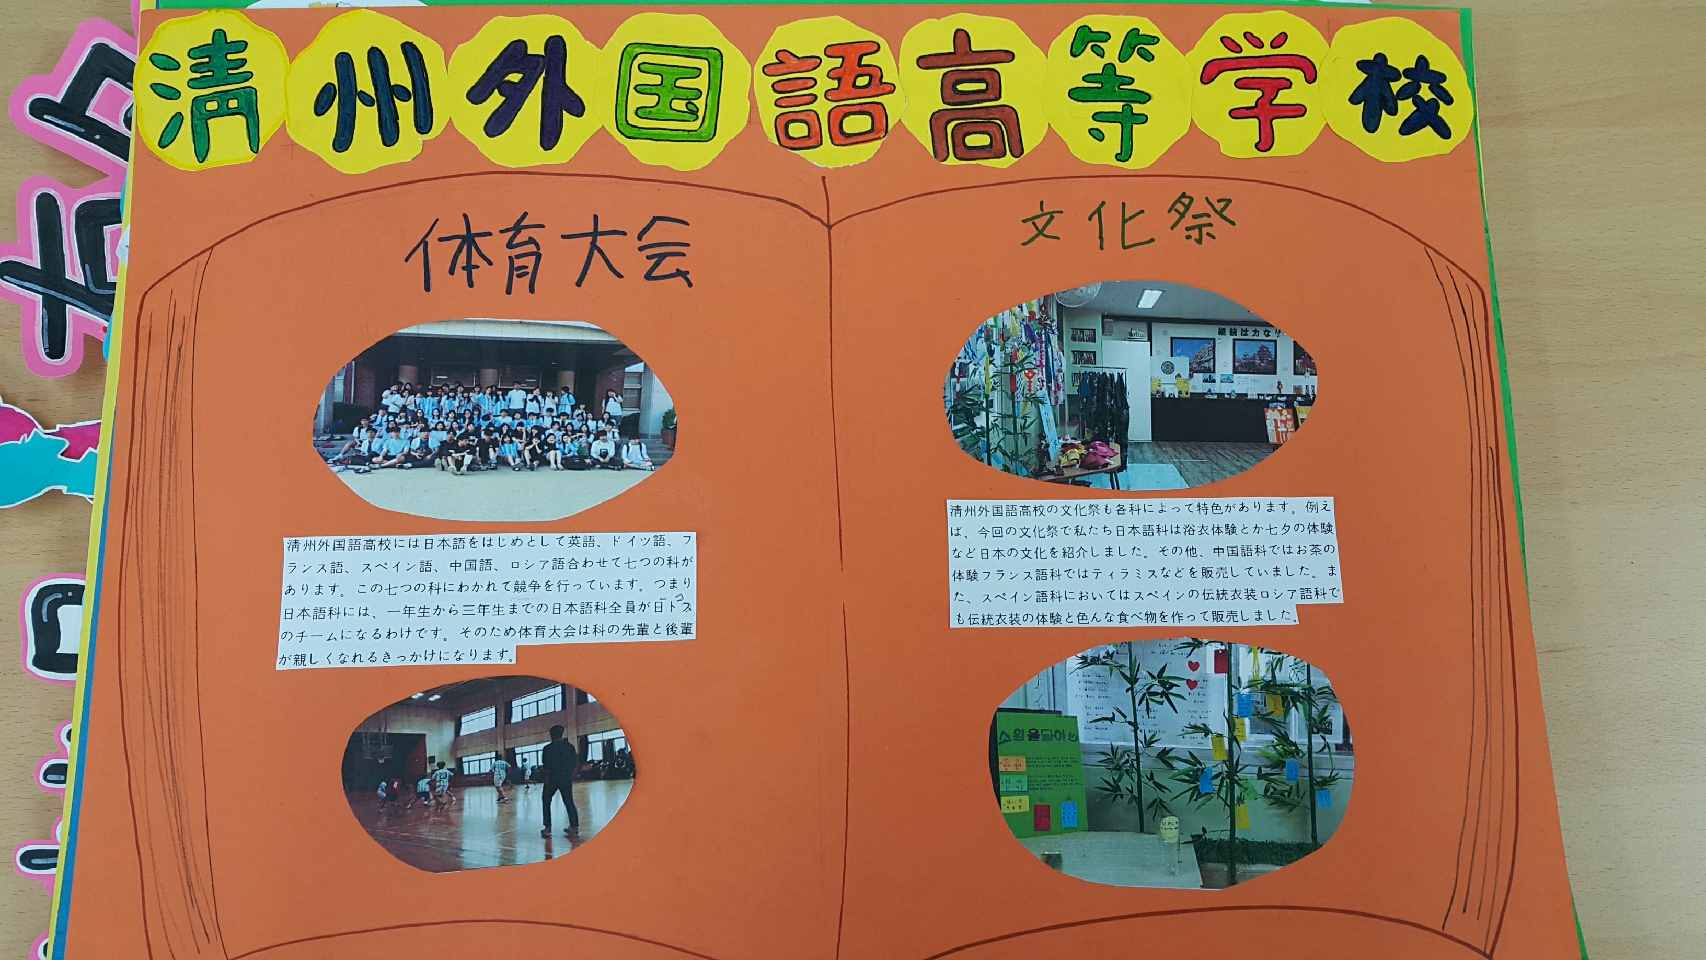 清州外国語高等学校
体育大会
清州外国語高校には日本語をはじめとして英語、ドイツ語、フ
ランス語、スペイン語、中国語、ロシア語合わせて七つの科が
あります。この七つの科にわかれて競争を行っています。つまり
日本語科には、一年生から三年生までの日本語科全員が日
のチームになるわけです。そのため体育大会は科の先輩と後輩
が親しくなれるきっかけになります。
文化祭
継続は力なり
清州外国語高校の文化祭も各科によって特色があります。例え
ば、今回の文化祭で私たち日本語科は浴衣体験とか七夕の体験
など日本の文化を紹介しました。その他、中国語科ではお茶の
体験フランス語科ではティラミスなどを販売していました。ま
た、スペイン語科においてはスペインの伝統衣装ロシア語科で
も伝統衣装の体験と色んな食べ物を作って販売しました。